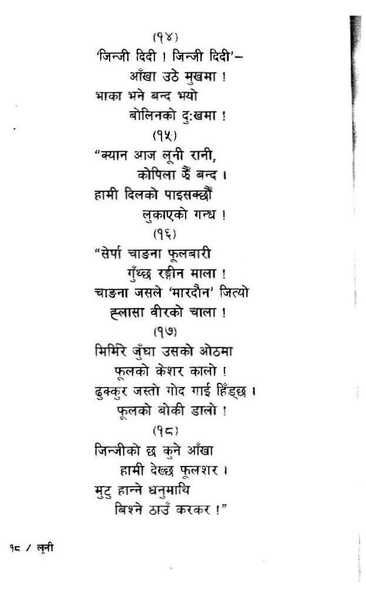 (१४)
'जिन्जी दिदी ! जिन्जी दिदी'–
आँखा उठे मुखमा !
भाका भने बन्द भयो
बोलिनको दुःखमा !
(१५)
“क्यान आज लूनी रानी,
कोपिला झैँ बन्द ।
हामी दिलको पाइसक्छौँ
लुकाएको गन्ध !
(१६)
“सेर्पा चाङना फूलबारी
गुँथ्छ रङ्गीन माला !
चाङना जसले 'मारदौन' जित्यो
ह्लासा वीरको चाला !
(१७)
मिर्मिरे जुँघा उसको ओठमा
फूलको केशर कालो !
ढुक्कुर जस्तो गोद गाई हिँड्छ ।
फूलको बोकी डालो !
(१८)
जिन्जीको छ कुने आँखा
हामी देख्छ फूलशर ।
मुटु हान्ने धनुमाथि
बिश्ने ठाउँ करकर !”
१८ / लूनी